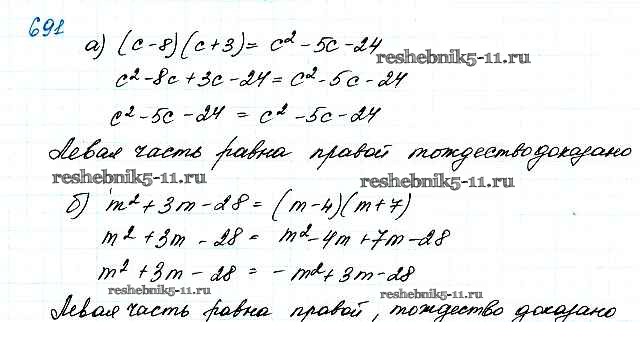 691
а) (c-8)(c+3) = c² - 5c - 24
reshebnik5-11.ru
c² - 8c + 3c - 24 = c² - 5c - 24
c² - 5c - 24 = c² - 5c - 24
Левая часть равна правой тождество доказано
reshebnik5-11.ru reshebnik5-11.ru
б) m² + 3m - 28 = (m-4)(m+7)
m² + 3m - 28 = m² - 4m + 7m - 28
m² + 3m - 28 = - m² + 3m - 28
reshebnik5-11.ru reshebnik5-11.ru
Левая часть равна правой, тождество доказано